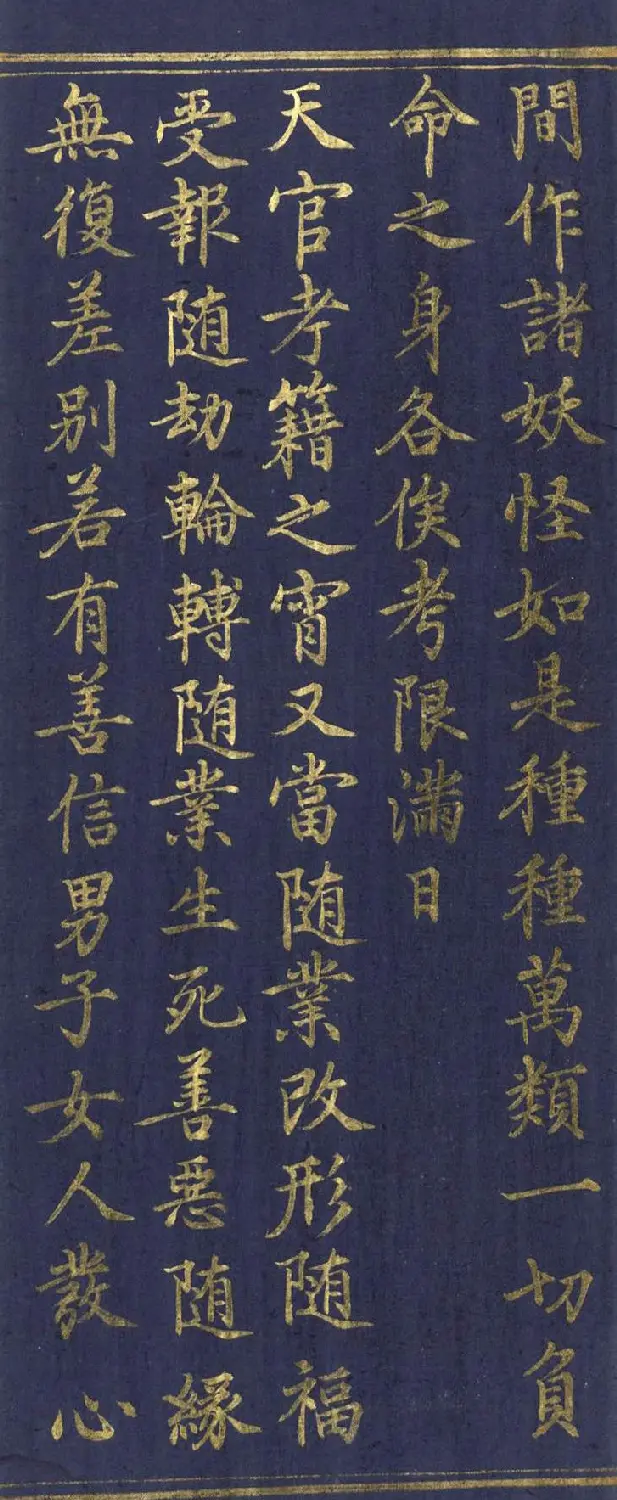 間作諸妖怪如是種種萬類一切負
命之身各俟考限滿日
天官考籍之宵又當随業改形随福
受報随劫輪轉随業生死善惡随緣
無復差别若有善信男子女人發心